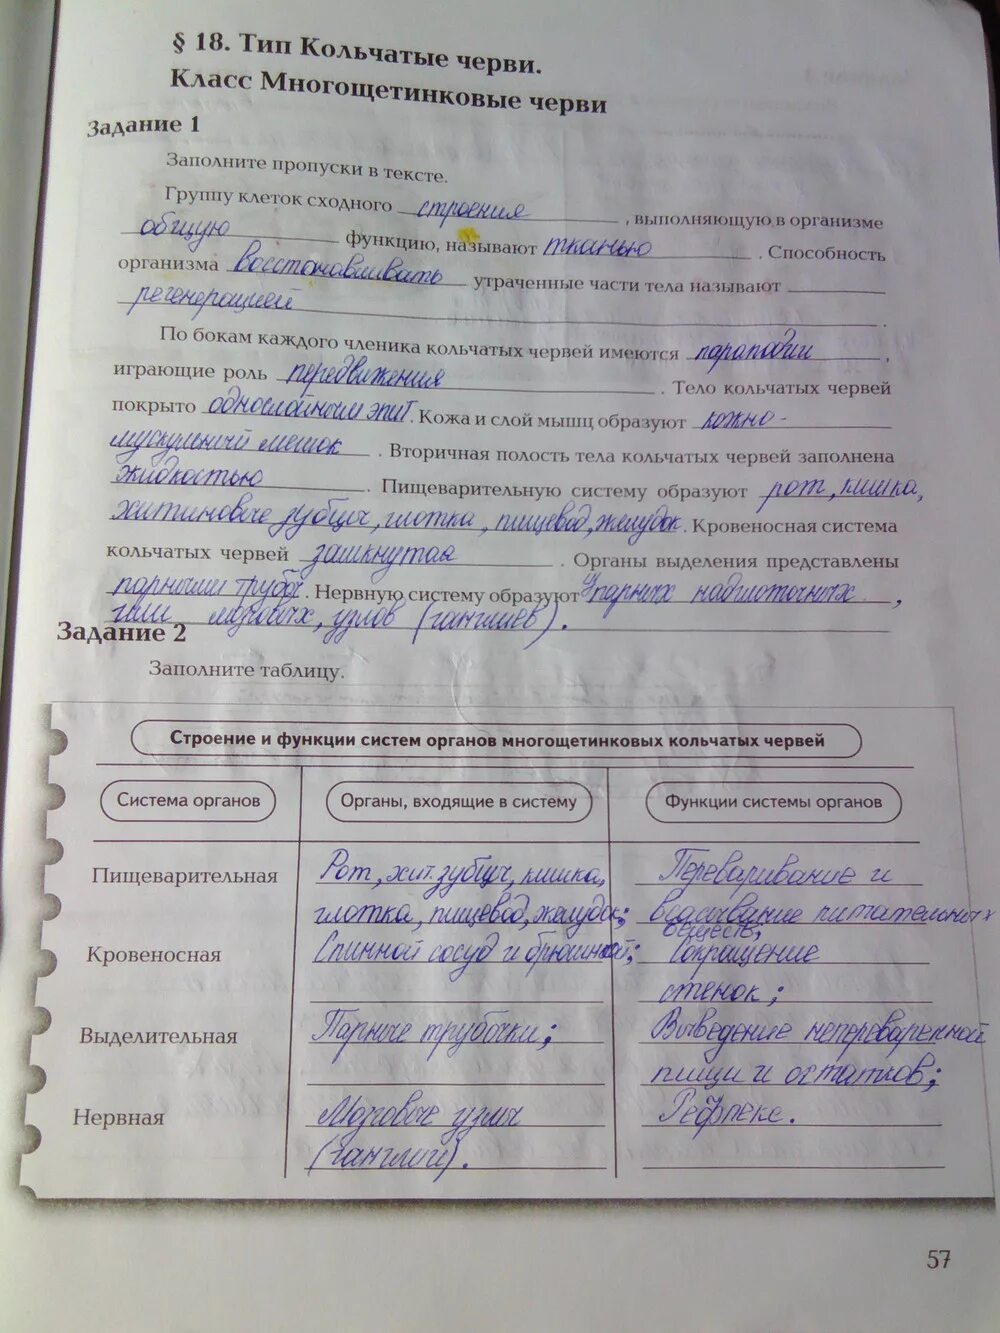 § 18. Тип Кольчатые черви.
Класс Многощетинковые черви
Задание 1
Заполните пропуски в тексте.
Группу клеток сходного строения, выполняющую в организме
общую функцию, называют тканью. Способность
организма восстанавливать утраченные части тела называют
регенерацией.
По бокам каждого членика кольчатых червей имеются параподии,
играющие роль передвижения. Тело кольчатых червей
покрыто однослойным эпит. Кожа и слой мышц образуют кожно-
мускульный мешок. Вторичная полость тела кольчатых червей заполнена
жидкостью. Пищеварительную систему образуют рот, кишка,
хитиновые зубцы, глотка, пищевод, желудок. Кровеносная система
кольчатых червей замкнутая. Органы выделения представлены
парными трубоч. Нервную систему образуют парных надглоточных,
мозговых, узлов (ганглиев).
Задание 2
Заполните таблицу.
Строение и функции систем органов многощетинковых кольчатых червей
Система органов Органы, входящие в систему Функции системы органов
Пищеварительная Рот, хит. зубцы, кишка, Переваривание и
глотка, пищевод, желудок; всасывание питательных
веществ;
Кровеносная Спинной сосуд и брюшной; Сокращение
стенок;
Выделительная Парные трубочки; Выведение непереваренной
пищи и остатков;
Нервная Мозговые узлы Рефлекс.
(ганглии).
57